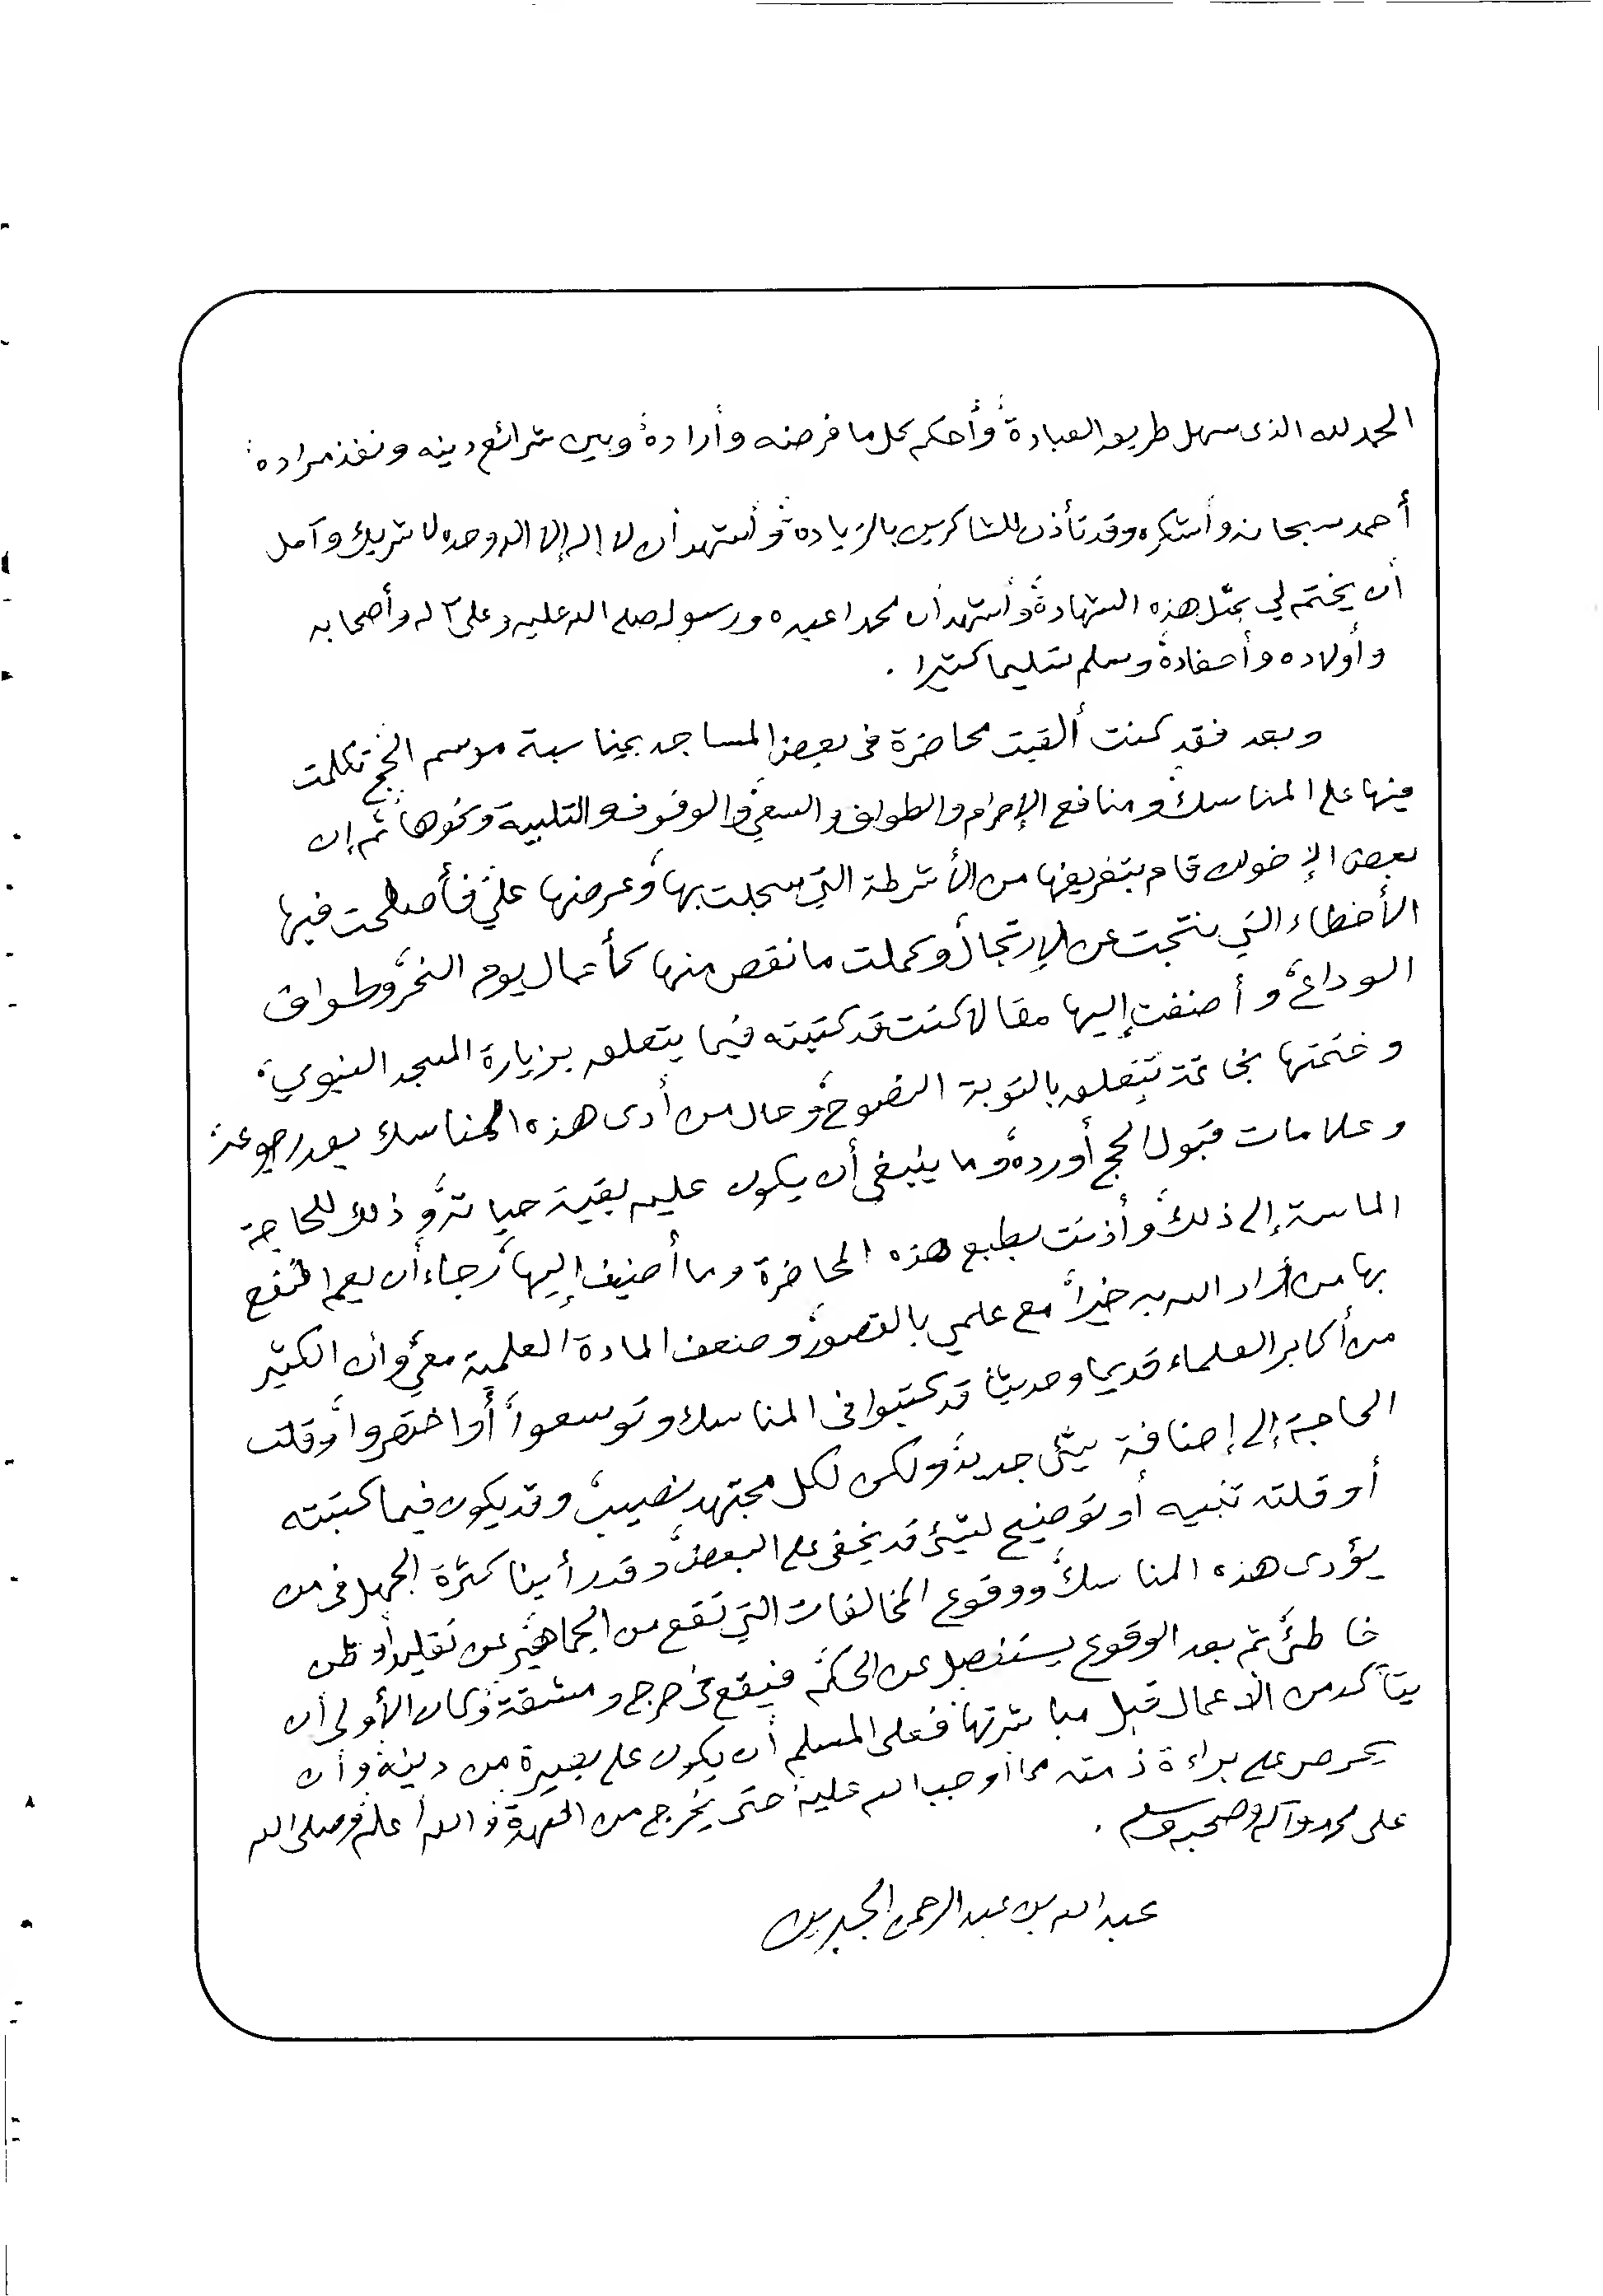 الحمد لله الذى سهل طريق العبادة، وأحكم كل ما فرضه وأراده، وبين شرائع دينه ونفذ مراده،
أحمده سبحانه وأشكره وقد تأذن للشاكرين بالزيادة، وأشهد أن لا إله إلا الله وحده لا شريك وآمل
أن يختم لي بمثل هذه الشهادة، وأشهد أن محمدا عبده ورسوله صلى الله عليه وعلى آله وأصحابه
وأولاده وأحفاده، وسلم تسليما كثيرا .
وبعد فقد كنت ألقيت محاضرة فى بعض المساجد بمناسبة موسم الحج، تكلمت
فيها على المناسك، ومنافع الإحرام والطواف والسعي، والوقوف والتلبية ونحوها، ثم إن
بعض الإخوان قام بتفريغها من الأشرطة التي سجلت بها، وعرضها علي، فأصلحت فيها
الأخطاء التي نتجت عن الإرتجال، وكملت ما نقص منها كأعمال يوم النحر، وطواف
الوداع، وأضفت إليها مقالا كنت قد كتبته فيما يتعلق بزيارة المسجد النبوي،
وختمتها بخاتمة تتعلق بالتوبة النصوح، وحال من أدى هذه المناسك بعد رجوعه،
وعلامات قبول الحج أو رده، وما ينبغي أن يكون عليه بقية حياته، وذلك للحاجة
الماسة إلى ذلك، وأذنت بطبع هذه المحاضرة وما أضيف إليها، رجاء أن يعم النفع
بها من أراد الله به خيراً، مع علمي بالقصور، وضعف المادة العلمية معي، وأن الكثير
من أكابر العلماء قديما وحديثا قد كتبوا فى المناسك وتوسعوا، أو اختصروا، وقلت
الحاجة إلى إضافة شئ جديد، ولكن لكل مجتهد نصيب، وقد يكون فيما كتبته
أو قلته تنبيه أو توضيح لشئ قد يخفى على البعض، وقد رأينا كثرة الجهل فى من
يؤدى هذه المناسك، ووقوع المخالفات التي تقع من الجماهير، عن تقليد أو ظن
خاطئ، ثم بعد الوقوع يستفصل عن الحكم، فيقع فى حرج ومشقة، وكان الأولى أن
يتأكد من الأعمال قبل مباشرتها، فعلى المسلم أن يكون على بصيرة من دينه، وأن
يحرص على براءة ذمته مما أوجب الله عليه، حتى يخرج من العهدة، والله أعلم، وصلى الله
على محمد وآله وصحبه وسلم .
عبد الله بن عبد الرحمن الجبرين